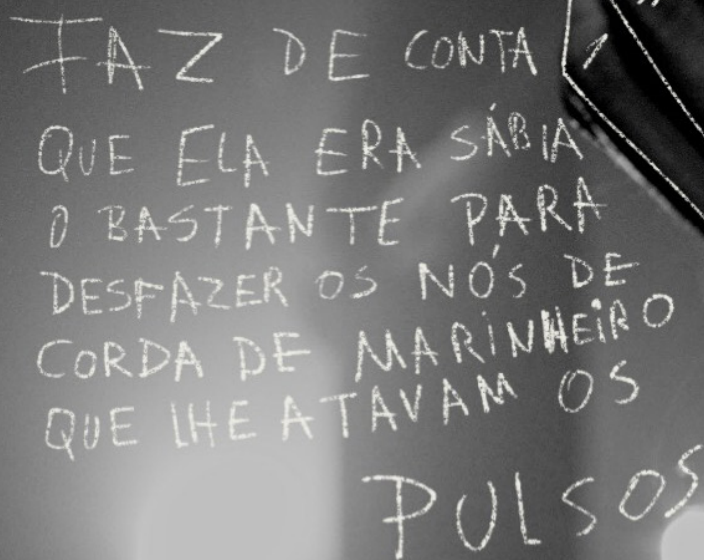 FAZ DE CONTA
QUE ELA ERA SÁBIA
O BASTANTE PARA
DESFAZER OS NÓS DE
CORDA DE MARINHEIRO
QUE LHE ATAVAM OS
PULSOS